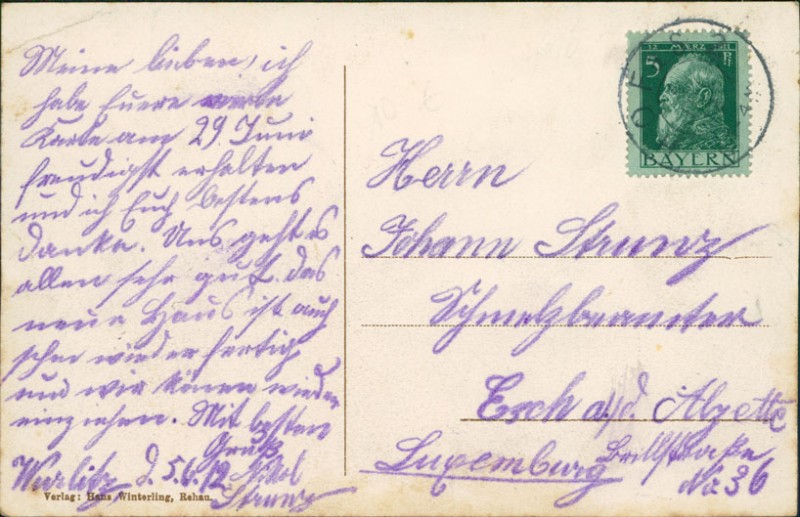 Meine lieben, ich
habe Euere werte
Karte am 29. Juni
freudigst erhalten
und ich Euch bestens
danke. Uns geht es
allen sehr gut. das
neue Haus ist auch
schon wieder fertig
und wir könen wieder
einziehen. Mit besten
Gruß
Wurlitz, d. 5.6.12
Strunz
Verlag: Hans Winterling, Rehau.
12 MÆRZ 1911
5 Pf
BAYERN
Herrn
Johann Strunz
Schmelzbeamter
Esch a/d. Alzette
Luxemburg
No 36